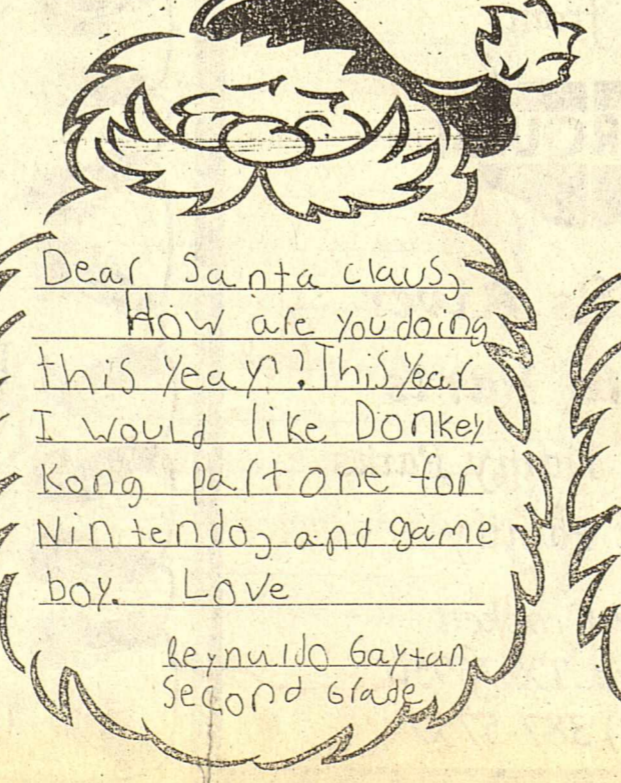 Dear Santa claus,
How are you doing
this year? This year
I would like Donkey
Kong part one for
Nintendo, and game
boy. Love
Reynuldo Gaytan
Second Grade